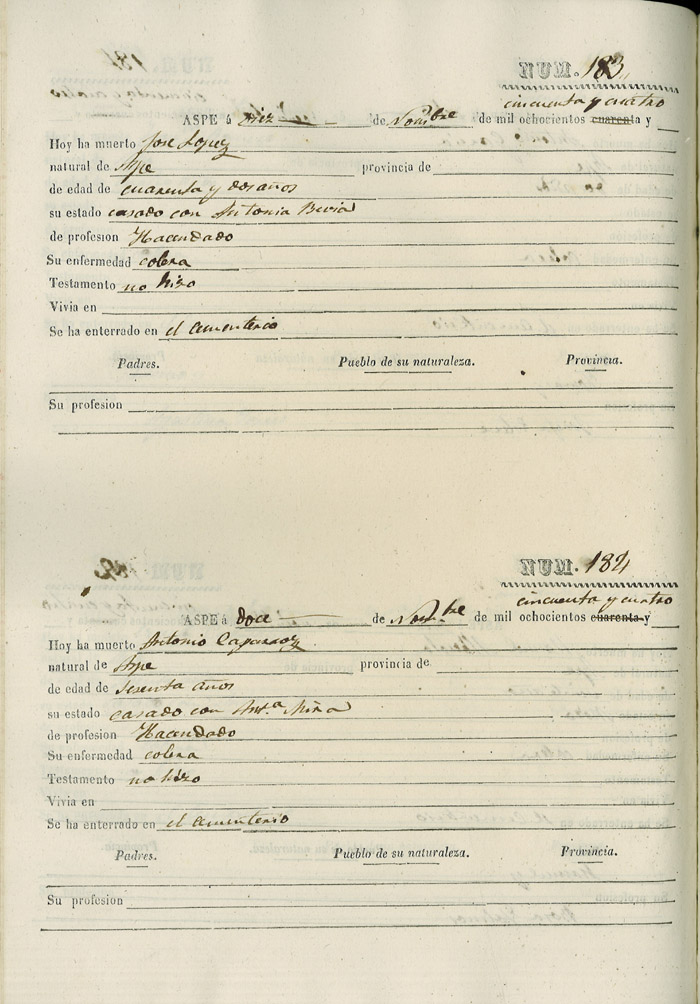 NUM. 183
cincuenta y cuatro
ASPE á diez de Novi.bre de mil ochocientos cuarenta y
Hoy ha muerto Jose Lopez
natural de Aspe provincia de
de edad de cuarenta y dos años
su estado casado con Antonia Beviá
de profesion Hacendado
Su enfermedad colera
Testamento no hizo
Vivia en
Se ha enterrado en el cementerio
Padres. Pueblo de su naturaleza. Provincia.
Su profesion
NUM. 184
cincuenta y cuatro
ASPE á doce de Nov.bre de mil ochocientos cuarenta y
Hoy ha muerto Antonio Caparros
natural de Aspe provincia de
de edad de Sesenta años
su estado casado con Ant.a Miña
de profesion Hacendado
Su enfermedad colera
Testamento no hizo
Vivia en
Se ha enterrado en el cementerio
Padres. Pueblo de su naturaleza. Provincia.
Su profesion